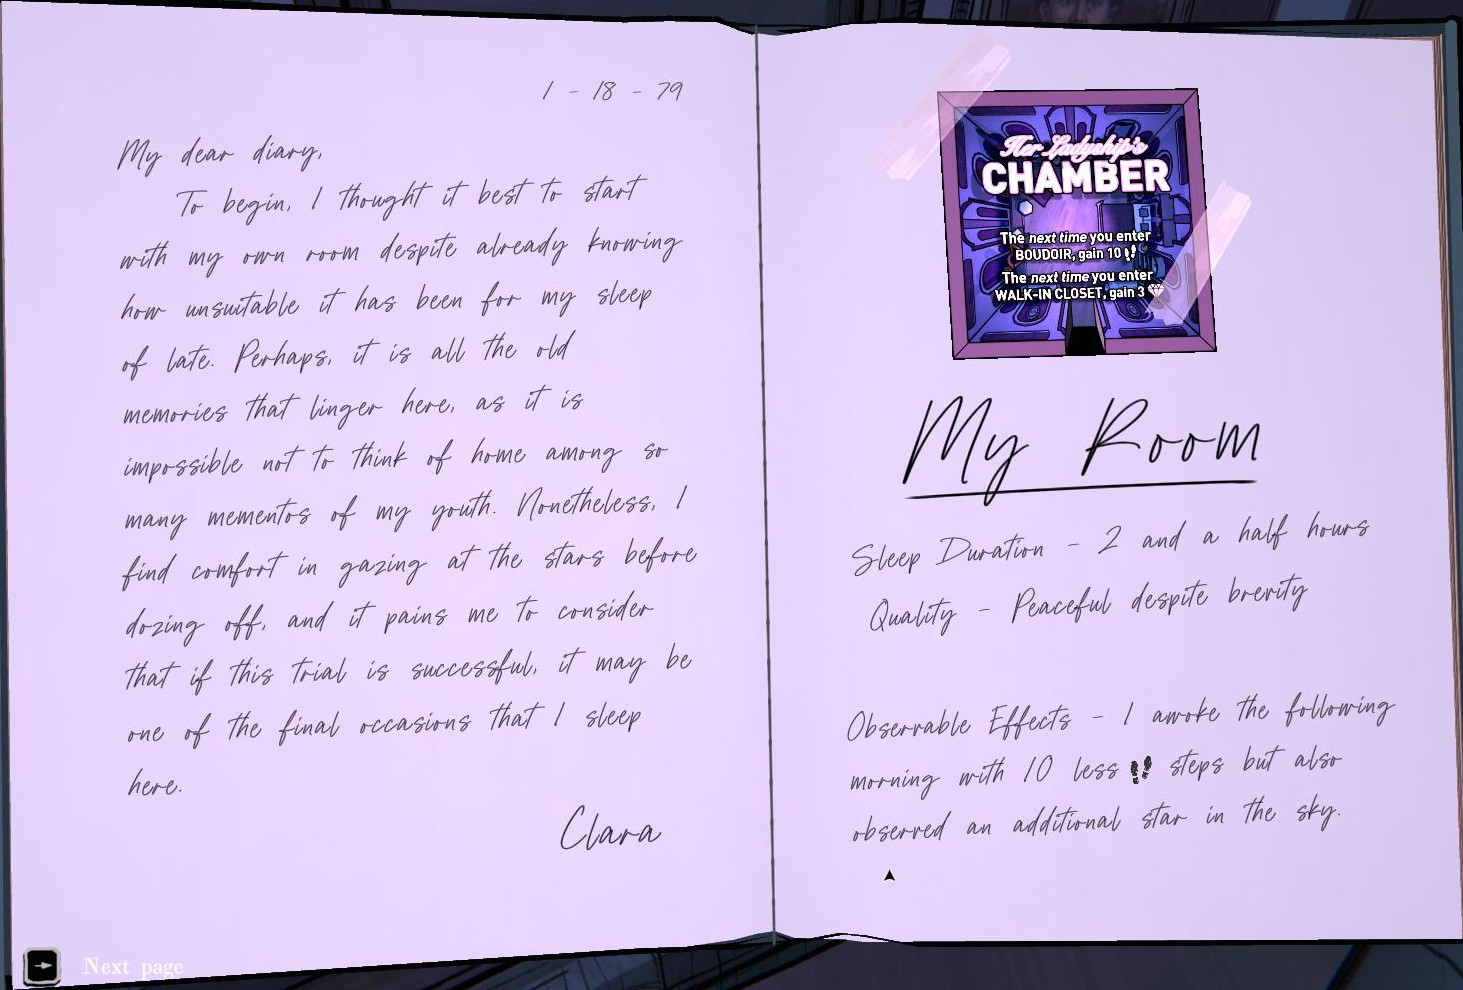 1 - 18 - 79
My dear diary,
To begin, I thought it best to start
with my own room despite already knowing
how unsuitable it has been for my sleep
of late. Perhaps, it is all the old
memories that linger here, as it is
impossible not to think of home among so
many mementos of my youth. Nonetheless, I
find comfort in gazing at the stars before
dozing off, and it pains me to consider
that if this trial is successful, it may be
one of the final occasions that I sleep
here.
Clara
Next page
Her Ladyship's
CHAMBER
The next time you enter
BOUDOIR, gain 10
The next time you enter
WALK-IN CLOSET, gain 3
My Room
Sleep Duration - 2 and a half hours
Quality - Peaceful despite brevity
Observable Effects - I awoke the following
morning with 10 less steps but also
observed an additional star in the sky.